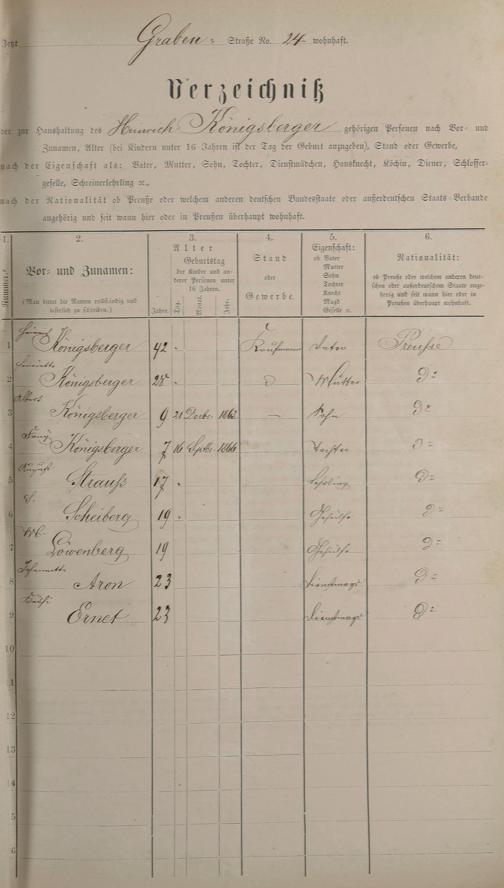 Jetzt Graben= Straße No. 24 wohnhaft.
Verzeichniß
der zur Haushaltung des Heinrich Königsberger gehörigen Personen nach Vor- und
Zunamen, Alter (bei Kindern unter 16 Jahren ist der Tag der Geburt anzugeben), Stand oder Gewerbe,
nach der Eigenschaft als: Vater, Mutter, Sohn, Tochter, Dienstmädchen, Hausknecht, Köchin, Diener, Schlosser-
geselle, Schreinerlehrling ꝛc.,
nach der Nationalität ob Preuße oder welchem anderen deutschen Bundesstaate oder außerdeutschen Staats-Verbande
angehörig und seit wann hier oder in Preußen überhaupt wohnhaft.
1. 2. 3. 4. 5. 6.
Nummer.
Vor- und Zunamen:
(Man bittet die Namen vollständig und
leserlich zu schreiben.)
Alter
Geburtstag
der Kinder und an-
derer Personen unter
16 Jahren.
Jahre. Tag. Monat. Jahr.
Stand
oder
Gewerbe.
Eigenschaft:
ob Vater
Mutter
Sohn
Tochter
Knecht
Magd
Geselle ꝛc.
Nationalität:
ob Preuße oder welchem anderen deut-
schen oder außerdeutschen Staate ange-
hörig und seit wann hier oder in
Preußen überhaupt wohnhaft.
1 Königsberger 42 Kaufmann Vater Preuße
2 Königsberger Mutter do
3 Albert Königsberger 9 Sohn do
4 Königsberger 7 16 1866 Tochter do
5 August Strauß 17 Lehrling do
6 Scheiberg 19 Gehülfe do
7 Löwenberg 19 Gehülfe do
8 Aron 23 Dienstmagd do
9 Ernet 23 Dienstmagd do
10
11
12
13
14
15
6